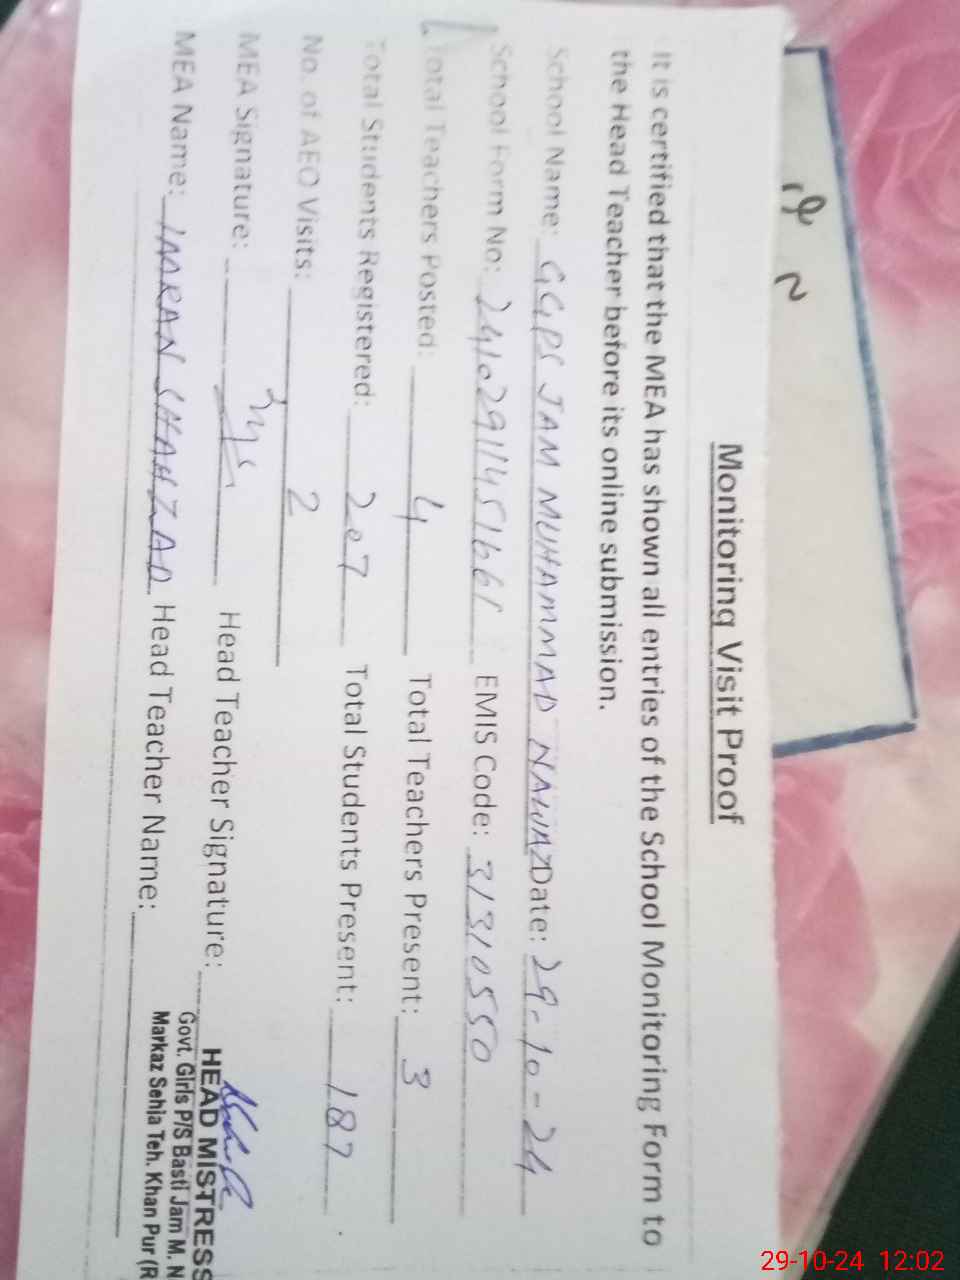 Monitoring Visit Proof
It is certified that the MEA has shown all entries of the School Monitoring Form to
the Head Teacher before its online submission.
School Name: GGPS JAM MUHAMMAD NAWAZ Date: 29-10-24
School Form No: 241029114516661 EMIS Code: 31310550
Total Teachers Posted: 4 Total Teachers Present: 3
Total Students Registered: 207 Total Students Present: 187
No. of AEO Visits: 2
MEA Signature: Head Teacher Signature:
MEA Name: IMRAN SHAHZAD Head Teacher Name:
HEAD MISTRESS
Govt. Girls P/S Basti Jam M. N
Markaz Sehja Teh. Khan Pur (R
29-10-24 12:02